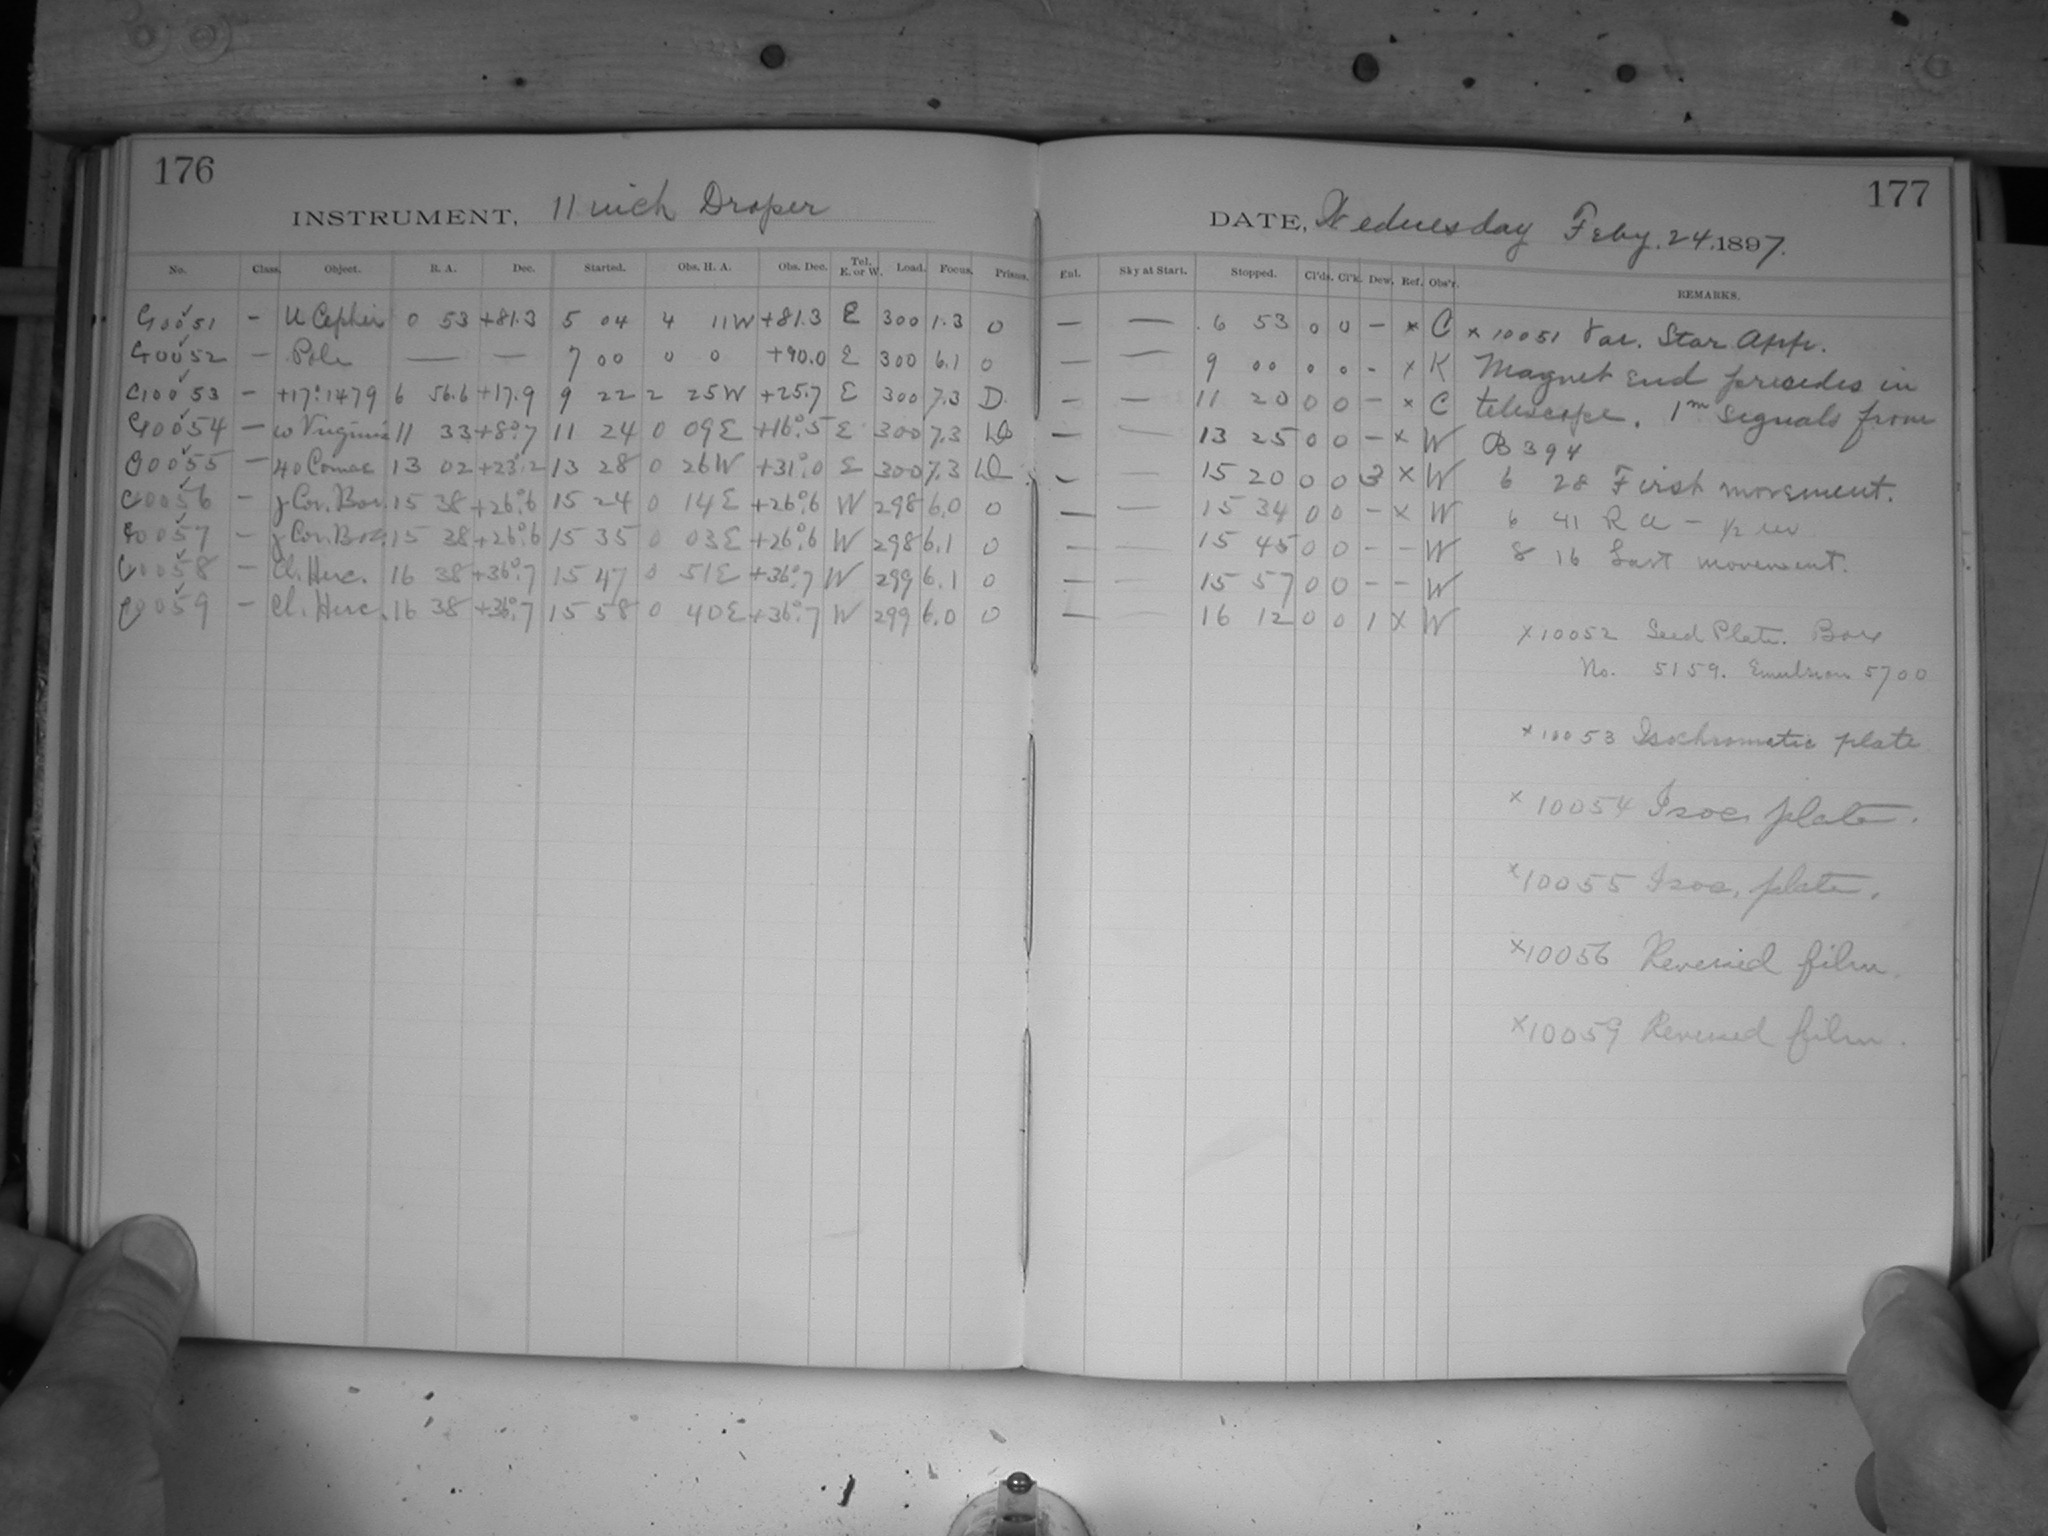 176
INSTRUMENT, 11 inch Draper
No. Class. Object. R. A. Dec. Started. Obs. H. A. Obs. Dec. Tel. E. or W. Load. Focus. Prisms.
C10051 - U Cephei 0 53 +81.3 5 04 4 11W +81.3 E 300 1.3 0
C10052 - Pole — — 7 00 0 0 +90.0 E 300 6.1 0
C10053 - +17°1479 6 56.6 +17.9 9 22 2 25W +25.7 E 300 7.3 D
C10054 - ω Virginis 11 33 +8°.7 11 24 0 09E +16°.5 E 300 7.3
C10055 - 40 Comae 13 02 +23°.2 13 28 0 26W +31°.0 E 300 7.3
C10056 - γ Cor. Bor. 15 38 +26°.6 15 24 0 14E +26°.6 W 298 6.0 0
C10057 - γ Cor. Bor. 15 38 +26°.6 15 35 0 03E +26°.6 W 298 6.1 0
C10058 - Cl. Herc. 16 38 +36°.7 15 47 0 51E +36°.7 W 299 6.1 0
C10059 - Cl. Herc. 16 38 +36°.7 15 58 0 40E +36°.7 W 299 6.0 0
177
DATE, Wednesday Feby. 24. 1897.
Enl. Sky at Start. Stopped. Cl'ds. Cl'k. Dew. Ref. Obs'r. REMARKS.
— — 6 53 0 0 - × C
— — 9 00 0 0 - × K
— — 11 20 0 0 - × C
— 13 25 0 0 - × W
— 15 20 0 0 3 × W
— — 15 34 0 0 - × W
— — 15 45 0 0 - - W
— — 15 57 0 0 - - W
— 16 12 0 0 1 × W
× 10051 Var. Star App.
Magnet end precedes in
telescope. 1m signals from
B 394
6 28 First movement.
6 41 R a - 1/2 rev
8 16 Last movement.
×10052 Seed Plate. Box
No. 5159. Emulsion 5700
×10053 Isochromatic plate
×10054 Isoc. plate.
×10055 Isoc. plate.
×10056 Reversed film.
×10059 Reversed film.